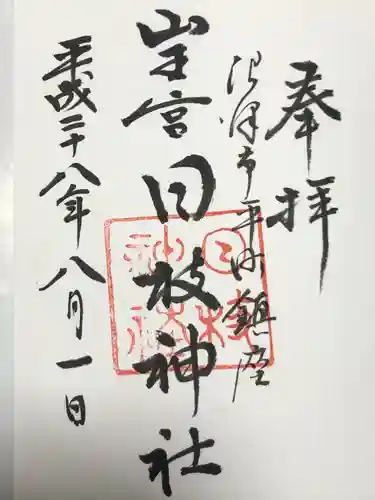 奉拝
沼津市平町鎮座
山王宮 日枝神社
日枝神社
平成二十八年八月一日